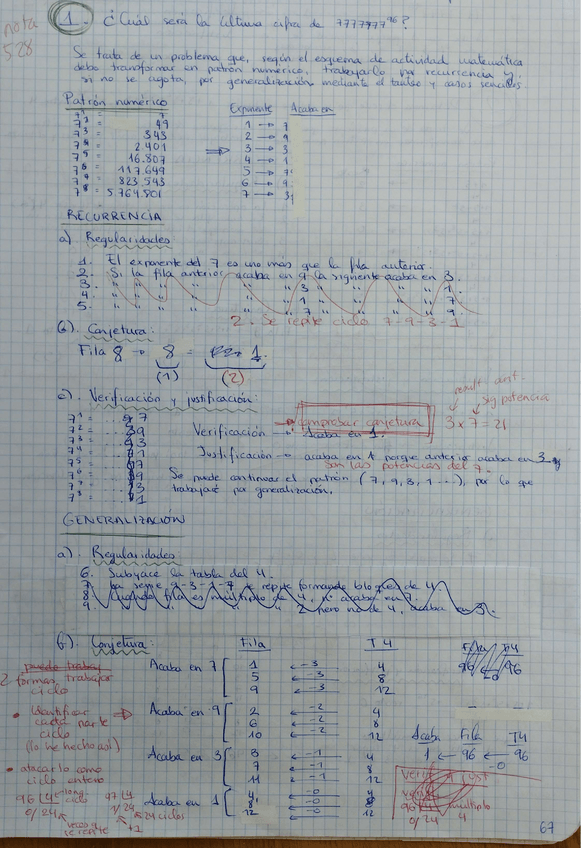 nota
528
1. ¿Cuál será la última cifra de 7777777⁹⁶?
Se trata de un problema que, según el esquema de actividad matemática
debo transformar en patrón numérico, trabajarlo por recurrencia y,
si no se agota, por generalización mediante el tanteo y casos sencillos.
Patrón numérico
7¹ = 7
7² = 49
7³ = 343
7⁴ = 2.401
7⁵ = 16.807
7⁶ = 117.649
7⁷ = 823.543
7⁸ = 5.764.801
⇒
Exponente Acaba en
1 → 7
2 → 9
3 → 3
4 → 1
5 → 7
6 → 9
7 → 3
RECURRENCIA
a) Regularidades
1. El exponente del 7 es uno más que la fila anterior.
2. Si la fila anterior acaba en 9 la siguiente acaba en 3.
3. " " " " 3 " " 1.
4. " " " " 1 " " 7
5. " " " " 7 " " 9.
2. Se repite ciclo 7-9-3-1
b) Conjetura:
Fila 8 → 8 = 1.
(1) (2)
c) Verificación y justificación:
7¹ = 7
7² = 9
7³ = 3
7⁴ = 1
7⁵ = 7
7⁶ = 9
7⁷ = 3
7⁸ = 1
Verificación → Acaba en 1.
→ comprobar conjetura
result. ant.
sig potencia
3 x 7 = 21
Justificación → acaba en 1 porque anterior acaba en 3
son las potencias del 7.
Se puede continuar el patrón (7, 9, 3, 1 ...), por lo que
trabajaré por generalización.
GENERALIZACIÓN
a). Regularidades
6. Subyace la tabla del 4.
7. La serie 9-3-1-7 se repite formando bloques de 4.
8. Cuando fila es múltiplo de 4, nº acaba en 7.
9. " " " 2 pero no de 4, acaba en 3.
b). Conjetura:
Fila T4
Acaba en 7
1 ←-3 4
5 ←-3 8
9 ←-3 12
Acaba en 9
2 ←-2 4
6 ←-2 8
10 ←-2 12
Acaba en 3
3 ←-1 4
7 ←-1 8
11 ←-1 12
Acaba en 1
4 ←-0 4
8 ←-0 8
12 ←-0 12
Fila T4
96 ←-0 96
Acaba Fila T4
1 ← 96 ←-0 96
96 4 múltiplo
0/24 4
2 formas trabajar
ciclo
• identificar
cada parte
ciclo
(lo he hecho así)
• atacarlo como
ciclo entero
96 |4 ← long ciclo
0/24 ← veces que
se repite
97 |4
1/24 ← 24 ciclos
+1
67